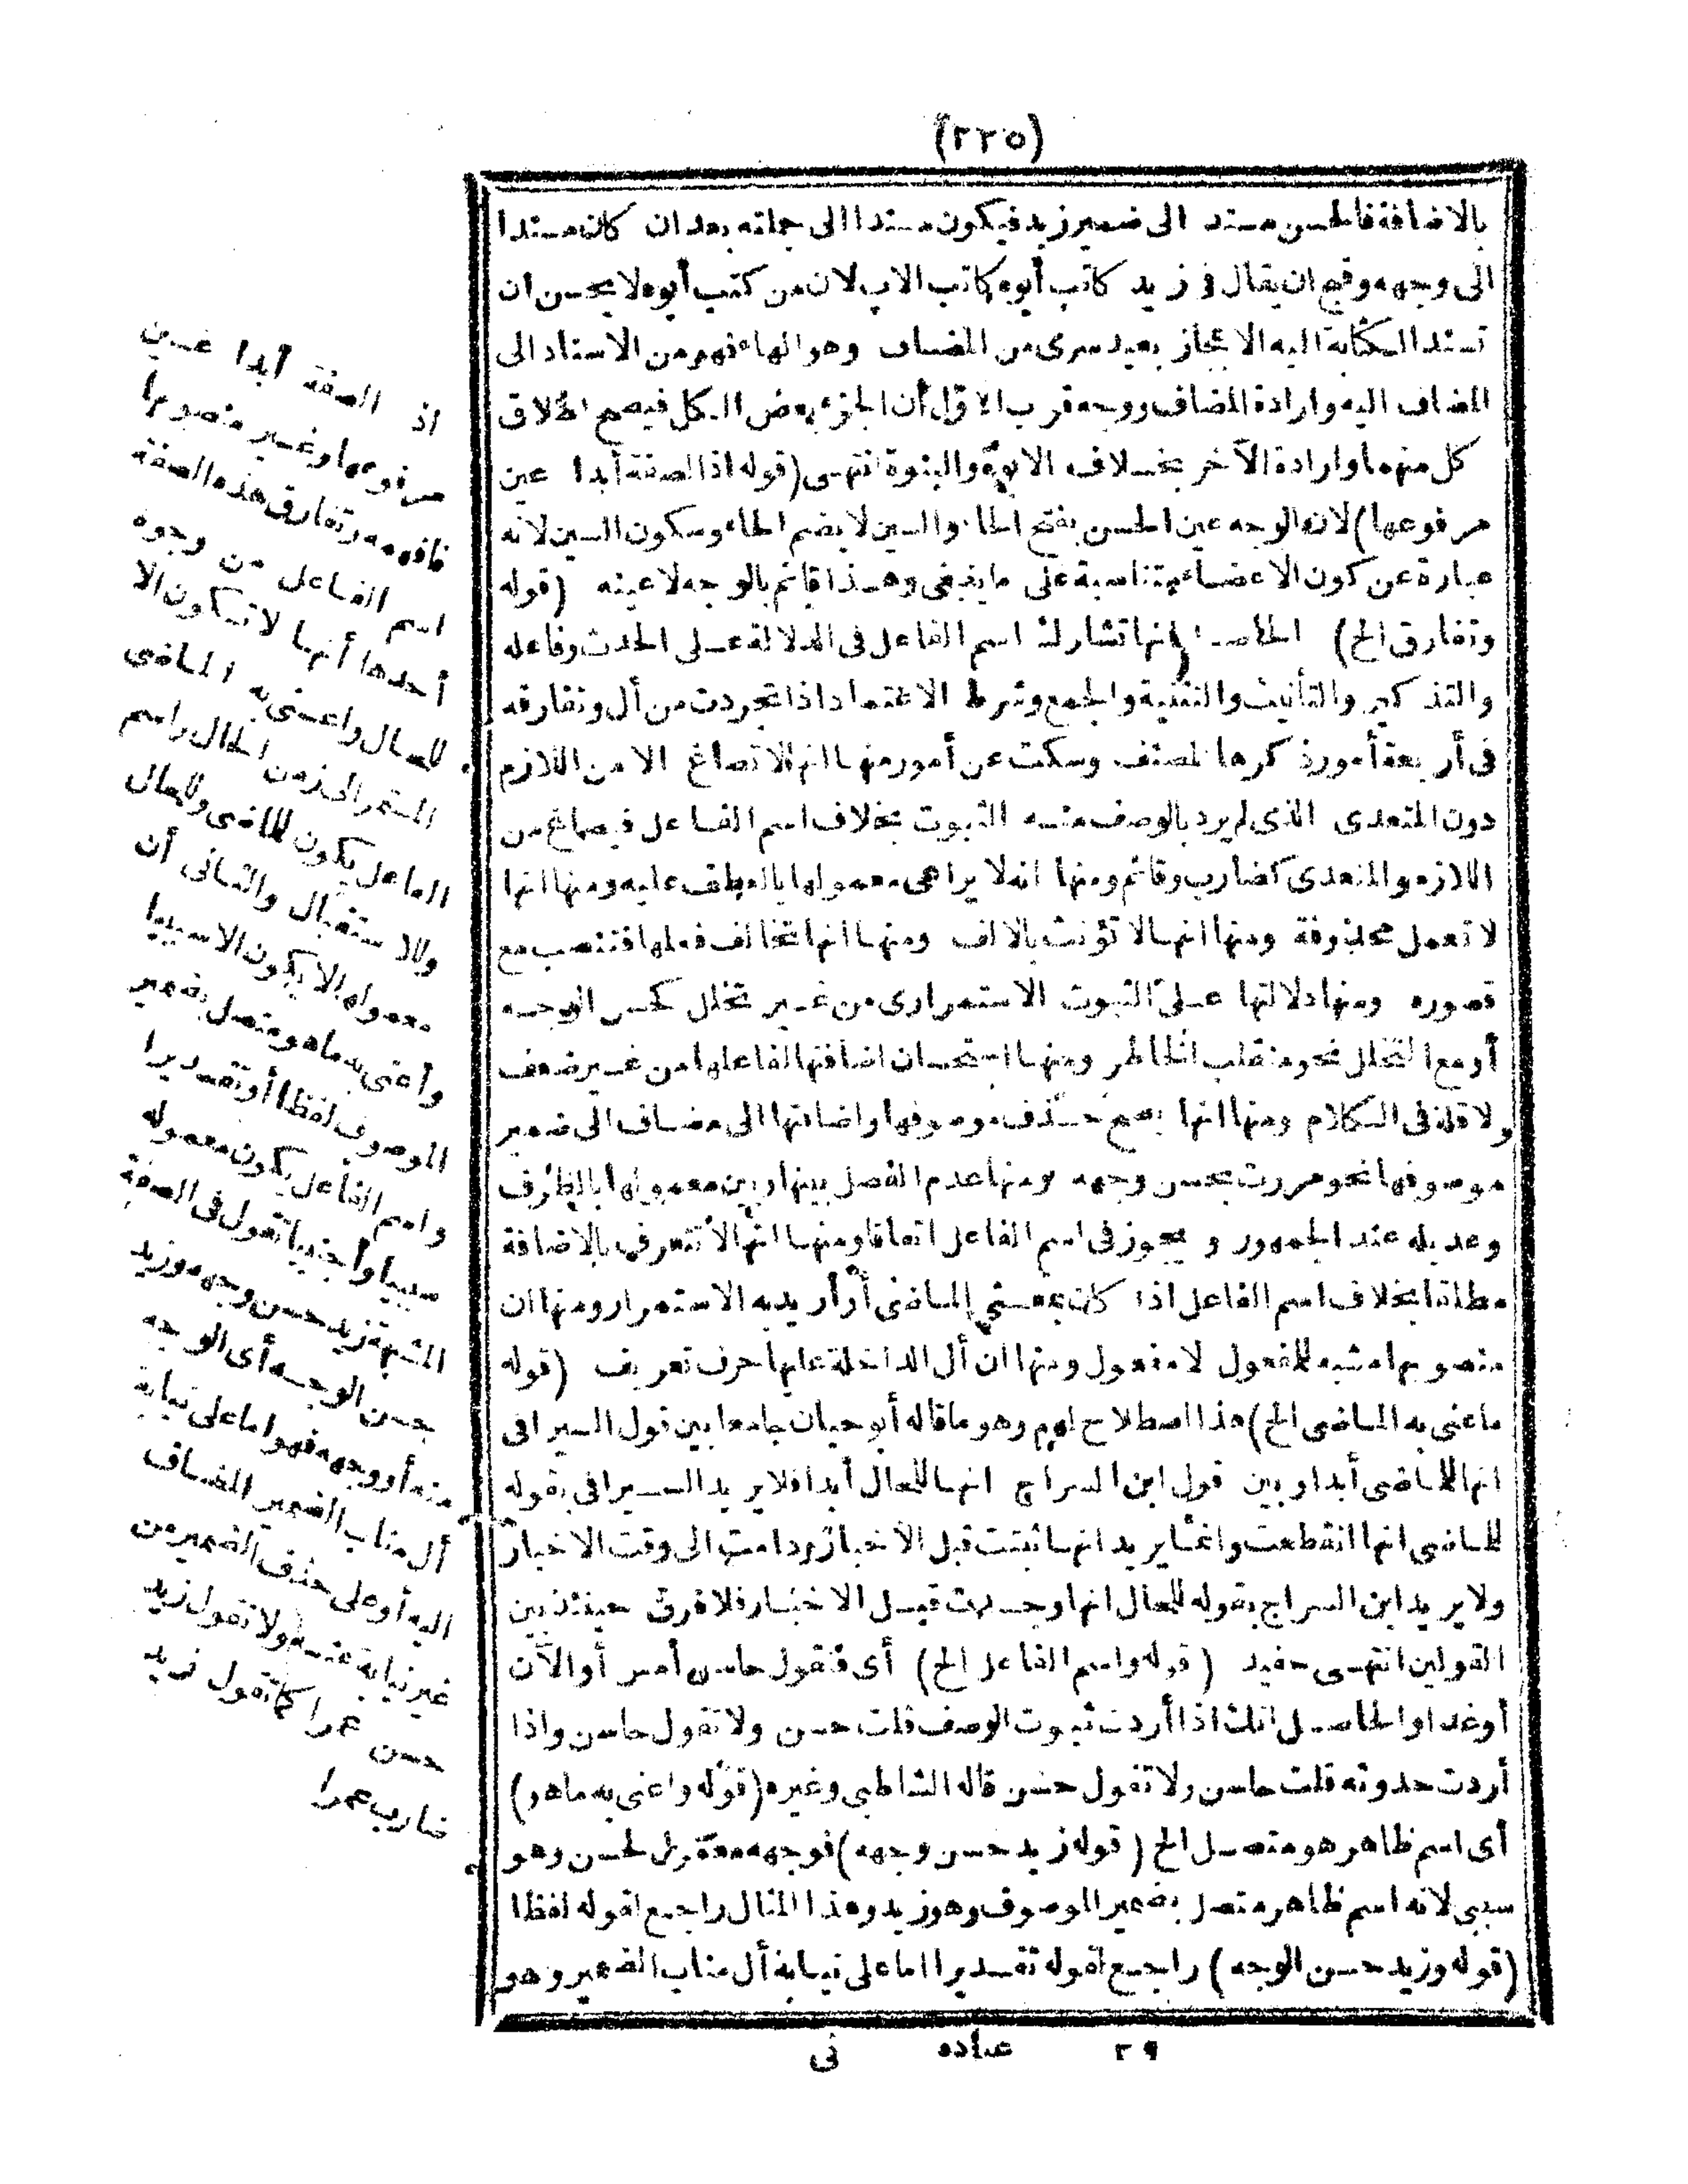 (٢٢٥)
بالاضافة فالحسن مسند الى ضمير زيد فيكون مسندا الى جملته بعد ان كان مسندا
الى وجهه وقبح ان يقال فى زيد كاتب أبوه كاتب الاب لان من كتب أبوه لا يحسن ان
تسند الكتابة اليه الا بمجاز بعيد سرى من المضاف وهو الهاء فهم من الاسناد الى
المضاف اليه وارادة المضاف ووجه قرب الاوّل أن الجزء بعض الكل فيصح اطلاق
كل منهما وارادة الآخر بخلاف الابوّة والبنوة انتهى (قوله اذ الصفة أبدا عين
مرفوعها) لان الوجه عين الحسن بفتح الحاء والسين لا بضم الحاء وسكون السين لانه
عبارة عن كون الاعضاء متناسبة على ما ينبغى وهذا قائم بالوجه لا عينه (قوله
وتفارق الخ) الحاصل انها تشارك اسم الفاعل فى الدلالة على الحدث وفاعله
والتذكير والتأنيث والتثنية والجمع وشرط الاعتماد اذا تجردت من أل وتفارقه
فى أربعة أمور ذكرها المصنف وسكت عن أمور منها انها لا تصاغ الا من اللازم
دون المتعدى الذى لم يرد بالوصف منه الثبوت بخلاف اسم الفاعل فيصاغ من
اللازم والمتعدى كضارب وقائم ومنها انه لا يراعى معمولها بالعطف عليه ومنها انها
لا تعمل محذوفة ومنها انها لا تؤنث بالالف ومنها انها تخالف فعلها فتنصب مع
قصوره ومنها دلالتها على الثبوت الاستمرارى من غير تخلل كحسن الوجه
أو مع التخلل نحو متقلب الخاطر ومنها استحسان اضافتها لفاعلها من غير ضعف
ولا قلة فى الكلام ومنها انها يصح حذف موصوفها واضافتها الى مضاف الى ضمير
موصوفها نحو مررت بحسن وجهه ومنها عدم الفصل بينها وبين معمولها بالظرف
وعديله عند الجمهور ويجوز فى اسم الفاعل اتفاقا ومنها انها لا تتعرف بالاضافة
مطلقا بخلاف اسم الفاعل اذا كان بمعنى الماضى أو أريد به الاستمرار ومنها ان
منصوبها مشبه للمفعول لا مفعول ومنها ان أل الداخلة عليها حرف تعريف (قوله
ما عنى به الماضى الخ) هذا اصطلاح لهم وهو ما قاله أبو حيان جامعا بين قول السيرافى
انها للماضى أبدا وبين قول ابن السراج انها للحال أبدا فلا يريد السيرافى بقوله
للماضى انها انقطعت وانما يريد انها ثبتت قبل الاخبار ودامت الى وقت الاخبار
ولا يريد ابن السراج بقوله للحال انها وجدت قبيل الاخبار فلا فرق حينئذ بين
القولين انتهى حفيد (قوله واسم الفاعل الخ) أى فتقول حاسن أمس أو الآن
أو غدا والحاصل انك اذا أردت ثبوت الوصف قلت حسن ولا تقول حاسن واذا
أردت حدوثه قلت حاسن ولا تقول حسن قاله الشاطبى وغيره (قوله واعنى به ما هو)
أى اسم ظاهر هو متصل الخ (قوله زيد حسن وجهه) فوجهه معمول لحسن وهو
سببى لانه اسم ظاهر متصل بضمير الموصوف وهو زيد وهذا المثال راجع لقوله لفظا
(قوله وزيد حسن الوجه) راجع لقوله تقديرا اما على نيابة أل مناب الضمير وهو
٢٩ عباده نى
اذ الصفة أبدا عين
مرفوعها وغير منصوبها
فافهمه وتفارق هذه الصفة
اسم الفاعل من وجوه
أحدها أنها لا تكون الا
للحال واعنى به الماضى
المستمر الى زمن الحال واسم
الفاعل يكون للماضى وللحال
وللاستقبال والثانى أن
معمولها لا يكون الا سببيا
وأعنى به ما هو متصل بضمير
الموصوف لفظا أو تقديرا
واسم الفاعل يكون معموله
سببيا وأجنبيا تقول فى الصفة
المشبهة زيد حسن وجهه وزيد
حسن الوجه أى الوجه
منه أو وجهه فهو اما على نيابة
أل مناب الضمير المضاف
اليه أو على حذف الضمير من
غير نيابة عنه ولا تقول زيد
حسن عمرا كما تقول زيد
ضارب عمرا